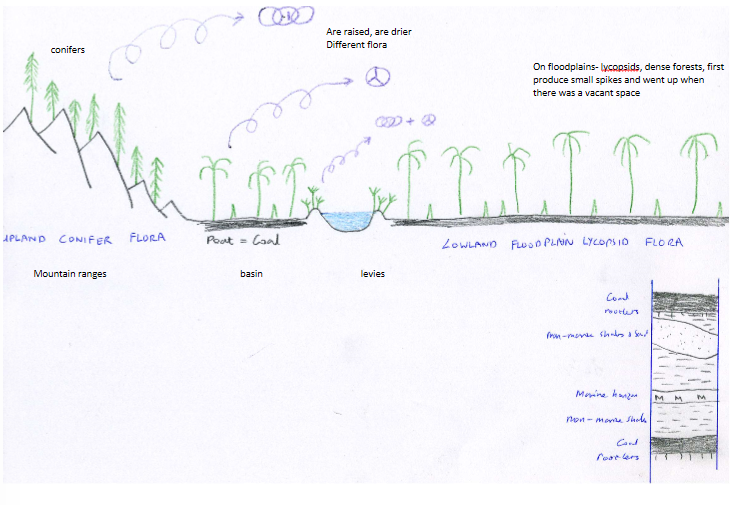 conifers
Are raised, are drier
Different flora
On floodplains- lycopsids, dense forests, first
produce small spikes and went up when
there was a vacant space
UPLAND CONIFER FLORA
Peat = Coal
LOWLAND FLOODPLAIN LYCOPSID FLORA
Mountain ranges
basin
levies
Coal
rootlets
non-marine shales & sand
Marine horizon
M M M
non-marine shale
Coal
Rootlets